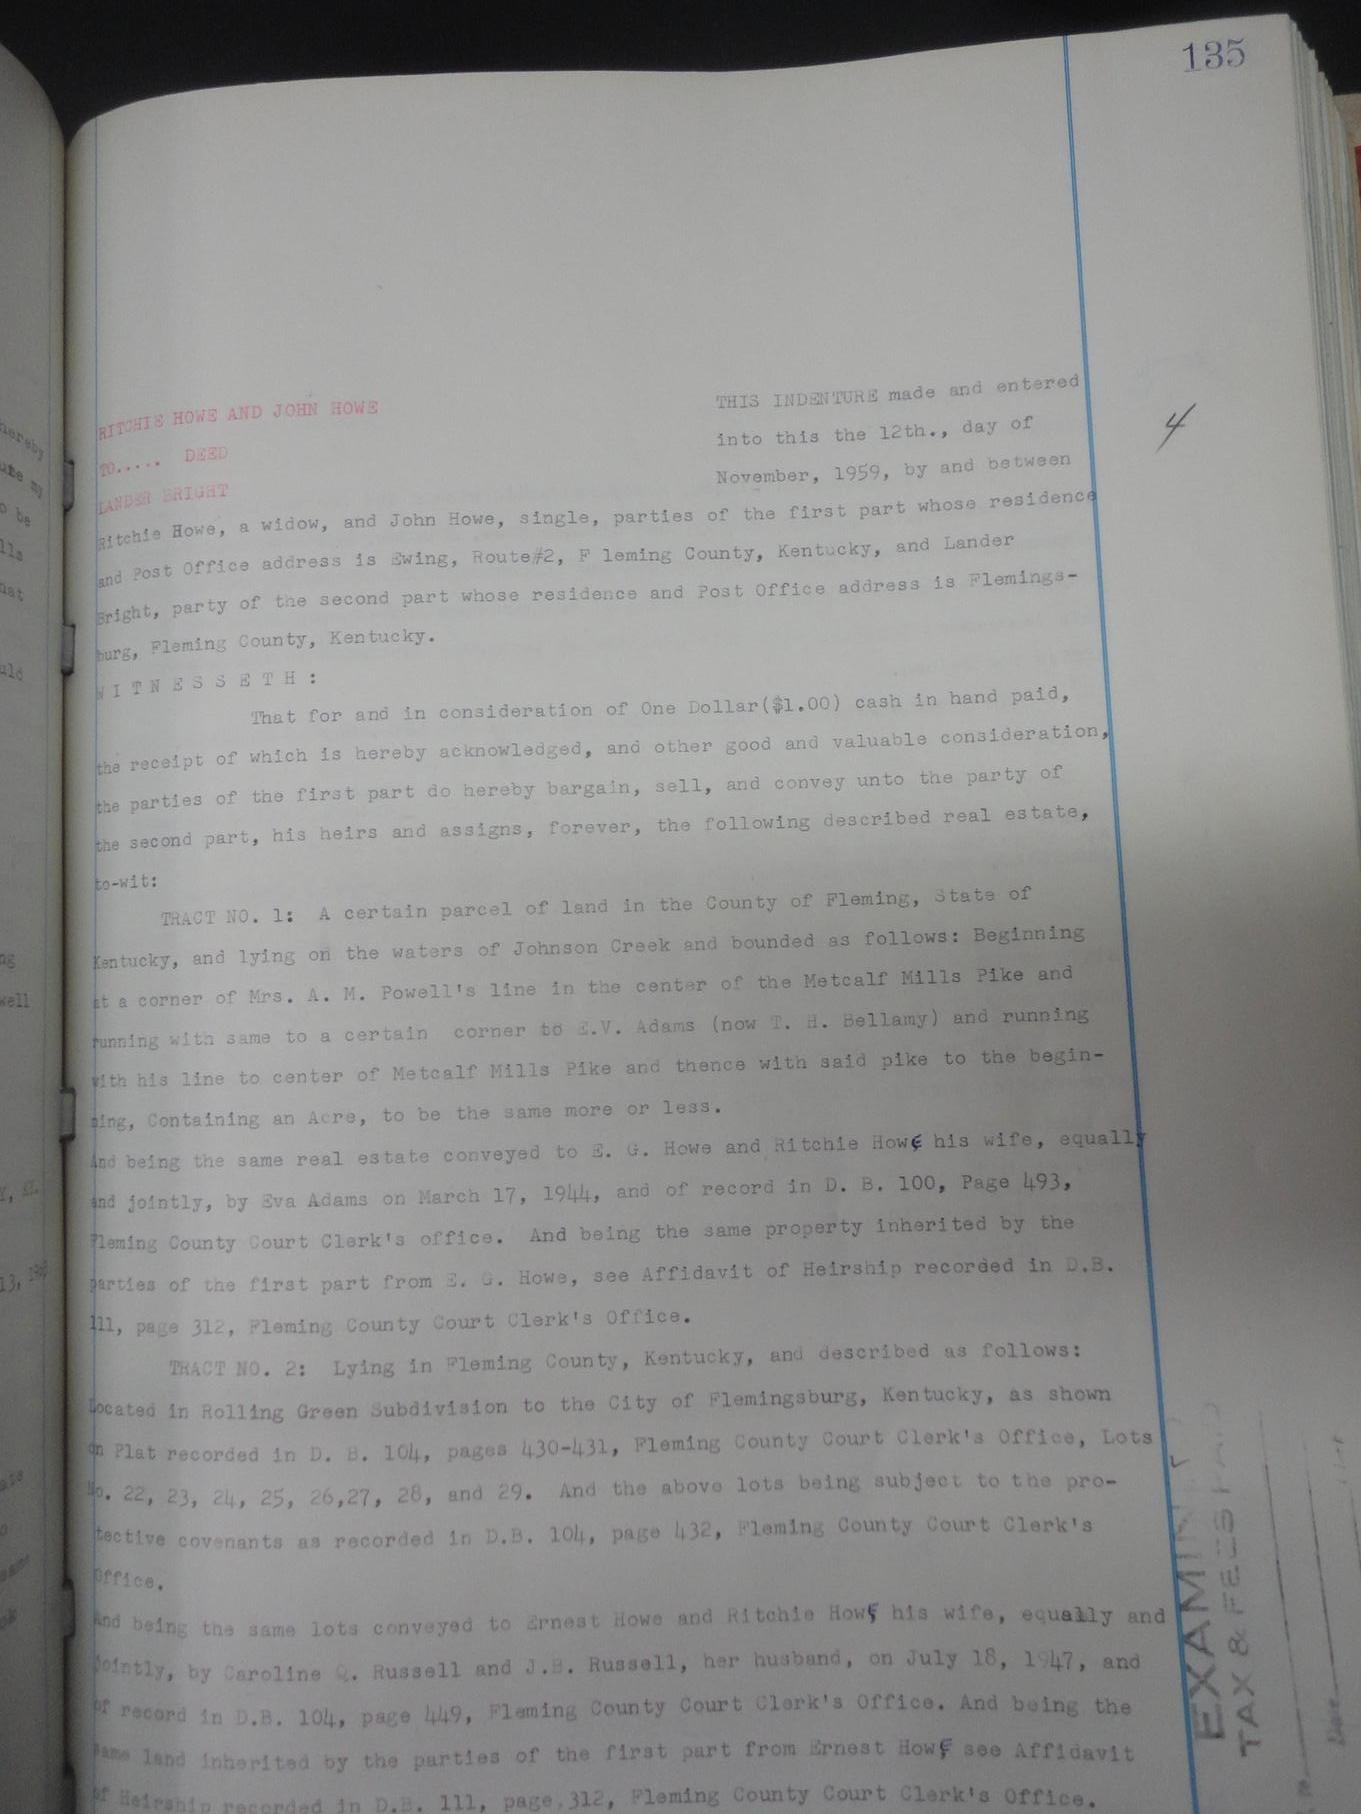 135
RITCHIE HOWE AND JOHN HOWE
TO..... DEED
LANDER BRIGHT
THIS INDENTURE made and entered
into this the 12th., day of
November, 1959, by and between
Ritchie Howe, a widow, and John Howe, single, parties of the first part whose residence
and Post Office address is Ewing, Route#2, F leming County, Kentucky, and Lander
Bright, party of the second part whose residence and Post Office address is Flemings-
burg, Fleming County, Kentucky.
W I T N E S S E T H :
That for and in consideration of One Dollar($1.00) cash in hand paid,
the receipt of which is hereby acknowledged, and other good and valuable consideration,
the parties of the first part do hereby bargain, sell, and convey unto the party of
the second part, his heirs and assigns, forever, the following described real estate,
to-wit:
TRACT NO. 1: A certain parcel of land in the County of Fleming, State of
Kentucky, and lying on the waters of Johnson Creek and bounded as follows: Beginning
at a corner of Mrs. A. M. Powell's line in the center of the Metcalf Mills Pike and
running with same to a certain corner to E.V. Adams (now T. H. Bellamy) and running
with his line to center of Metcalf Mills Pike and thence with said pike to the begin-
ning, Containing an Acre, to be the same more or less.
And being the same real estate conveyed to E. G. Howe and Ritchie Howe his wife, equally
and jointly, by Eva Adams on March 17, 1944, and of record in D. B. 100, Page 493,
Fleming County Court Clerk's office. And being the same property inherited by the
parties of the first part from E. G. Howe, see Affidavit of Heirship recorded in D.B.
111, page 312, Fleming County Court Clerk's Office.
TRACT NO. 2: Lying in Fleming County, Kentucky, and described as follows:
Located in Rolling Green Subdivision to the City of Flemingsburg, Kentucky, as shown
on Plat recorded in D. B. 104, pages 430-431, Fleming County Court Clerk's Office, Lots
No. 22, 23, 24, 25, 26,27, 28, and 29. And the above lots being subject to the pro-
tective covenants as recorded in D.B. 104, page 432, Fleming County Court Clerk's
Office.
And being the same lots conveyed to Ernest Howe and Ritchie Howe his wife, equally and
jointly, by Caroline Q. Russell and J.B. Russell, her husband, on July 18, 1947, and
of record in D.B. 104, page 449, Fleming County Court Clerk's Office. And being the
same land inherited by the parties of the first part from Ernest Howe see Affidavit
of Heirship recorded in D.B. 111, page 312, Fleming County Court Clerk's Office.
4
TAX & FEES PAID
Date